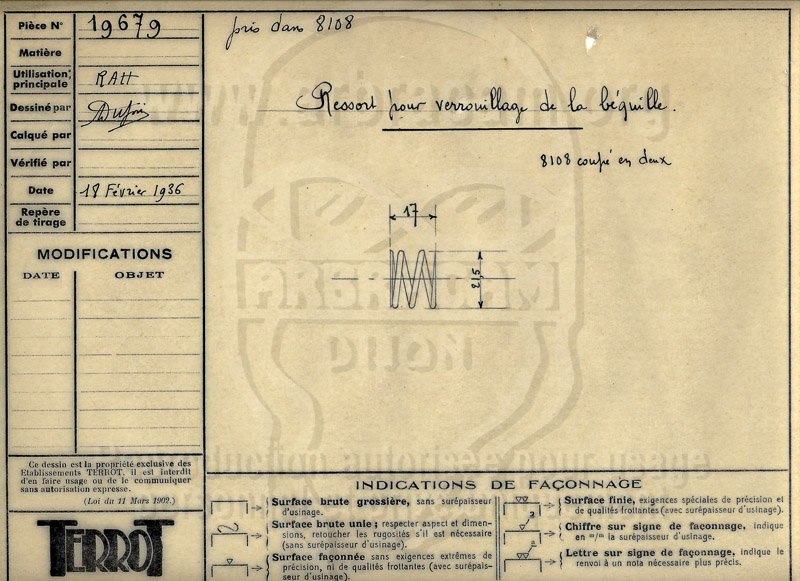 Pièce N° 19679
Matière
Utilisation principale RAH
Dessiné par
Calqué par
Vérifié par
Date 18 Février 1936
Repère de tirage
MODIFICATIONS
DATE OBJET
Ce dessin est la propriété exclusive des
Etablissements TERROT, il est interdit
d'en faire usage ou de le communiquer
sans autorisation expresse.
(Loi du 11 Mars 1902.)
TERROT
pris dans 8108
Ressort pour verrouillage de la béquille.
8108 coupé en deux
17
21,5
ARBRACAM
DIJON
INDICATIONS DE FAÇONNAGE
Surface brute grossière, sans surépaisseur
d'usinage.
Surface brute unie ; respecter aspect et dimen-
sions, retoucher les rugosités s'il est nécessaire
(sans surépaisseur d'usinage).
Surface façonnée sans exigences extrêmes de
précision, ni de qualités frottantes (avec surépais-
seur d'usinage).
Surface finie, exigences spéciales de précision et
de qualités frottantes (avec surépaisseur d'usinage).
Chiffre sur signe de façonnage, indique
en m/m la surépaisseur d'usinage.
Lettre sur signe de façonnage, indique le
renvoi à un nota nécessaire plus précis.